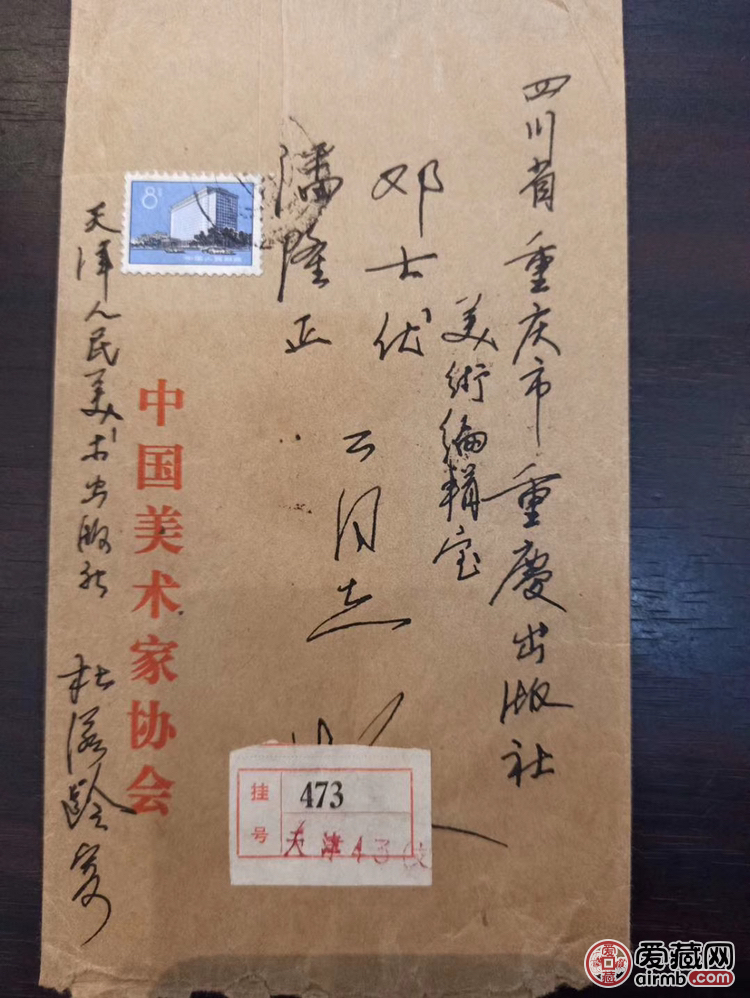 四川省重庆市重慶出版社
美術编輯室
邓士伏
潘隆正
二同志
8
中国人民邮政
中国美术家协会
天津人民美术出版社 杜滋龄寄
挂号
473
天津43
爱藏网
airmb.com